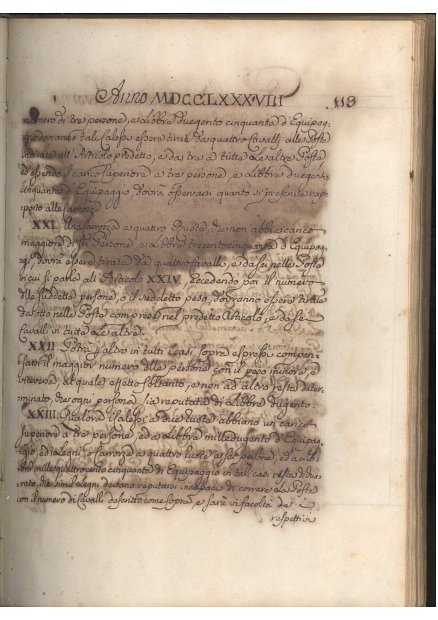 Anno MDCCLXXXVIII 119
numero di tre persone, e Libbre duegento cinquanta d'Equipag-
gio dovranno tali Calessi essere tirati da quattro Cavalli alle Poste
indicate all'Articolo predetto, e da tre a tutte le altre Poste
ed essendo il carico superiore a tre persone e Libbre duegento
cinquanta d'Equipaggio, dovrà osservarsi quanto si prescrive rap-
porto alle Carrozze.
XXI. Una Carrozza a quattro Ruote, che non abbia carico
maggiore di sei Persone, e Libbre trecentocinquanta d'Equipag-
gio, dovrà essere tirata da quattro Cavalli, e da sei nelle Poste
di cui si parla all'Articolo XXIV, eccedendo poi il numero
delle suddette persone, o il suddetto peso, dovranno essere tirate
da otto nelle Poste comprese nel predetto Articolo, e da sei
Cavalli in tutte le altre.
XXII. Potrà per altro in tutti i casi sopra espressi compen-
sarsi il maggior numero delle persone con il peso minore, e
viceversa, al quale effetto soltanto, e non ad altro resta deter-
minato, che ogni persona sia reputata di Libbre dugento.
XXIII. Qualora i Calessi a due Ruote abbiano un carico
superiore a tre persone, ed a Libbre milledugento d'Equipag-
gio, ed i Legni, o Carrozze a quattro Ruote a sei persone, ed a Lib-
bre mille quattrocento cinquanta di Equipaggio in tali casi resta dichia-
rato, che simili legni devano reputarsi incapaci di correre le Poste
con il numero di Cavalli descritto come sopra, e sarà in facoltà dei
respettivi